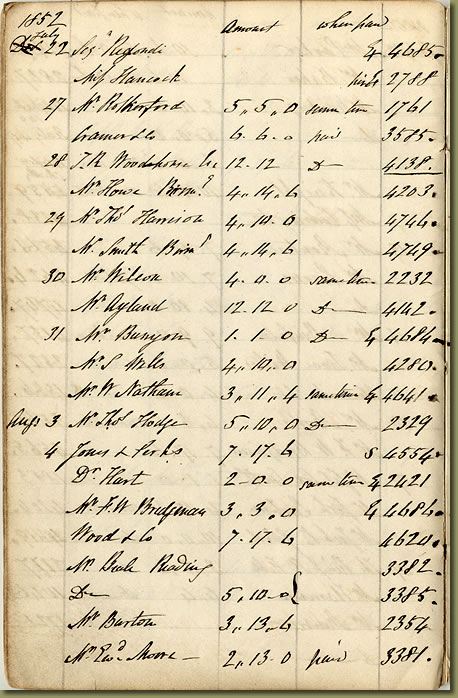 1852 Amount when paid
July
22 Segr Regondi & 4685.
Miss Hancock 2788
27 Mr Rotherford 5,, 5,, 0 same time 1761
Cramer & Co 6. 6. 0 paid 3585.
28 J. R. Woodhouse 12. 12 Do 4138.
Mr House Birmm 4,, 14,, 6 4203.
29 Mr Thos Harrison 4,, 10. 0 4746.
Mr Smith Birmm 4,, 14,, 6 4749.
30 Mr Wilson 4. 0. 0 same time 2232
Mr Ayland 12. 12 0 Do 4142.
31 Mr Bunyon 1. 1. 0 Do & 4684.
Mr S. Wells 4,, 10,, 0 4280.
Mr W Natham 3,, 11,, 4 same time & 4641.
Augs 3 Mr Thos Hodge 5,, 10,, 0 Do 2329
4 Jones & Perks 7. 17. 6 S 4554.
Dr Hart 2 - 0. 0 same time & 2421
Mr F. W Bridgeman 3,, 3,, 0 & 4686.
Wood & Co 7. 17. 6 4620.
Mr Beale Reading 3382.
Do 5,, 10. 0 { 3385.
Mr Burton 3,, 13,, 6 2354
Mr Ewd Moore 2,, 13 - 0 paid 3381.